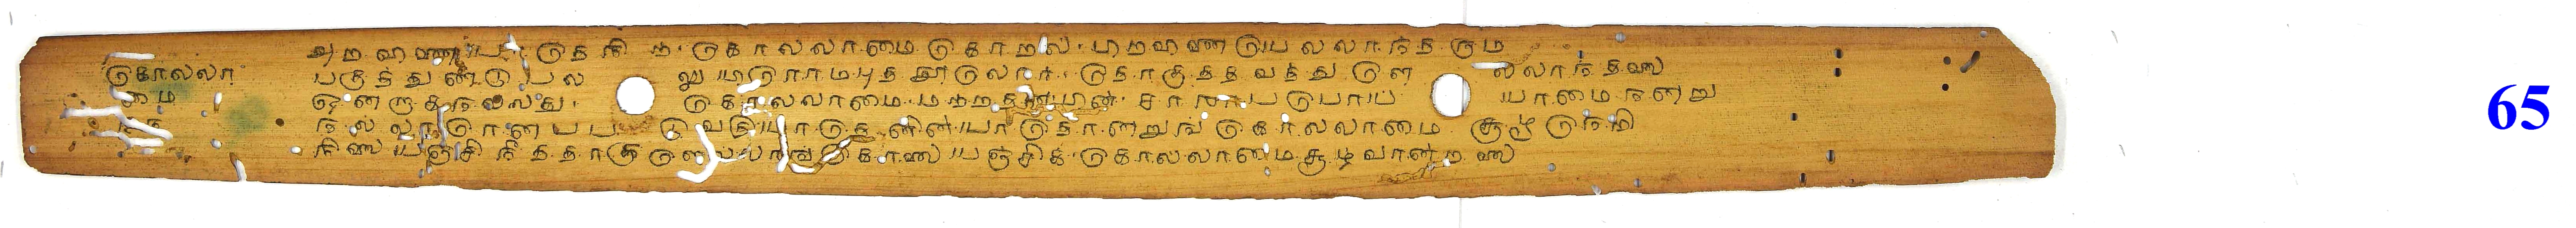 அறவினை யாதெனின கொலலாமை கொறல பிறவினை யெலலாநதரும
கொலலா பகுத்துண்டு பல லுயிரொமபுத னூலொர தொகுததவத்து ளெ லலாநதலை
மை ஒனறாக நலலது கொலலாமை மறறதன பின சாரப பொயயாமை நனறு
நலலாறெனப படுவதியாதெனின யாதொனறுங கொலலாமை சூழு நெறி
நிலையஞ்சி நீததாருளெலலாங கொலையஞ்சிக கொலலாமை சூழவான றலை
65